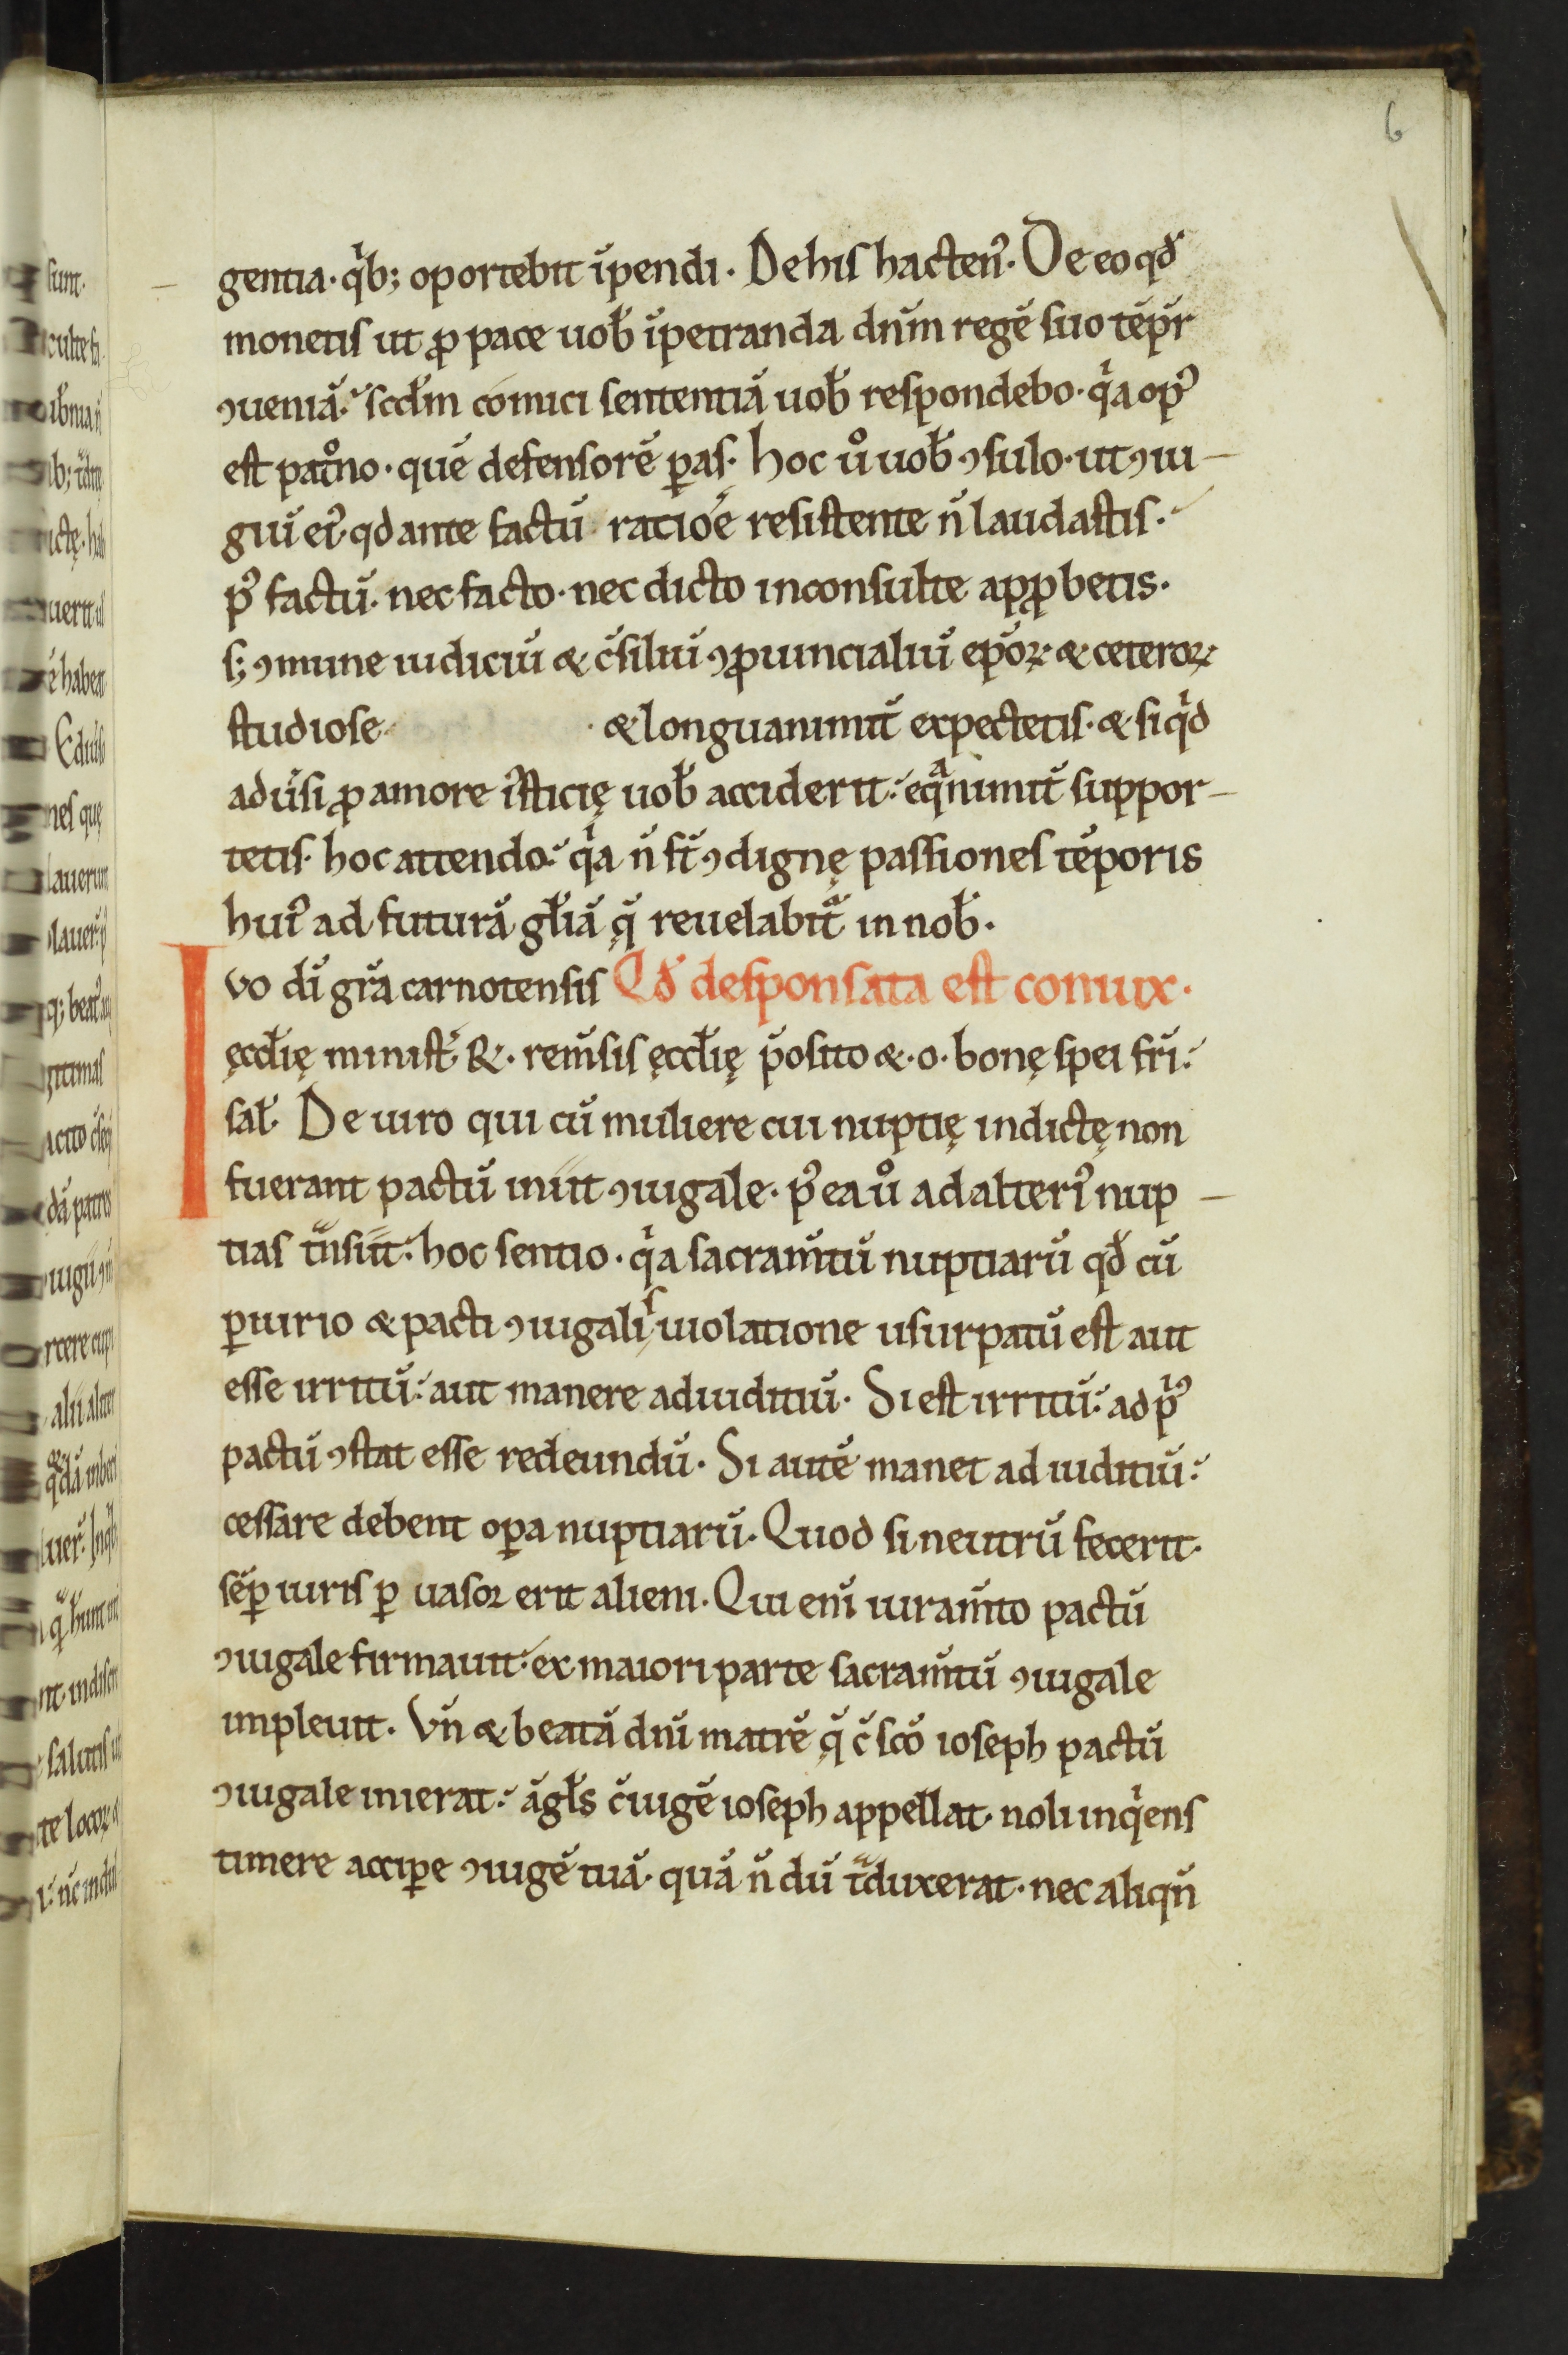 6
gentia. qͥb; oportebit īpendi. De his hacten᷒. De eo qd̄
monetis ut ꝓ pace uob̄ īpetranda dn̄m regē suo tēpr̄
ꝯueniā. scd̄m comici sententiā uob̄ respondebo. qͥa op᷒
est patͦno. quē defensorē ꝑas. hoc uͦ uob̄ ꝯsulo. ut ꝯiu
giū ei᷒. qd ante factū ratioē resistente n̄ laudastis.
p᷒ factū. nec facto. nec dicto inconsulte apꝓbetis.
s; ꝯmune iudiciū & c̄siliū ꝯꝓuincialiū ep̄oꝝ. & ceteroꝝ
studiose. & longuanimit̄ expectetis. & siqͥd
adūsi ꝓ amore iͥsticię uob̄ acciderit. eqͣnimit̄ suppor
tetis. hoc attendo. qͥa n̄ st̄ ꝯdignę passiones tēporis
hui᷒ ad futurā gl̄iā q̄ reuelabitᷓ in nob̄.
Ivo dī gr̄a carnotensis Qd̄ desponsata est coniux.
ęccl̄ię minist᷒ R. rem̄sis ęccl̄ię p̄osito & .o. bonę spei fr̄i.
sal̄. De uiro qui cū muliere cui nuptię indictę non
fuerant pactū iniit ꝯiugale. p᷒ ea uͦ ad alteri᷒ nup
tias tͣnsiit. hoc sentio. qͥa sacram̄tū nuptiarū qd̄ cū
ꝑiurio & pacti ꝯiugalis uiolatione usurpatū est aut
esse irritū. aut manere ad iuditiū. Si est irritū. ad pͥ᷒
pactū ꝯstat esse redeundū. Si autē manet ad iuditiū.
cessare debent oꝑa nuptiarū. Quod si neutrū fecerit.
sēꝑ iuris ꝑ uasor erit alieni. Qui eni̅ iuram̄to pactū
ꝯiugale firmauit. ex maiori parte sacram̄tū ꝯiugale
impleuit. Vn̄ & beatā dn̄i matrē q̄ c̄ sc̄o ioseph pactū
ꝯiugale inierat. āgl̄s c̄iugē ioseph appellat. noli inqͥens
timere acciꝑe ꝯiugē tuā. quā n̄ dū tͣduxerat. nec aliqn̄